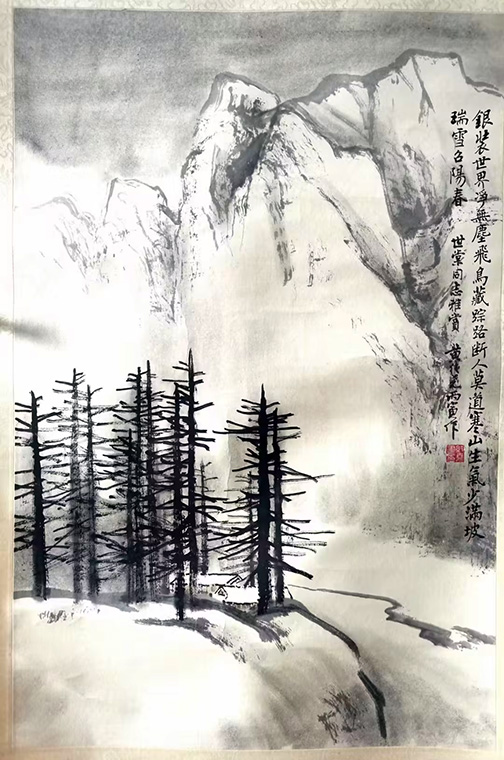 銀裝世界淨無塵飛鳥藏踪路断人莫道寒山生氣少满坡
瑞雪召陽春 世堂同志雅賞 黄 丙寅作